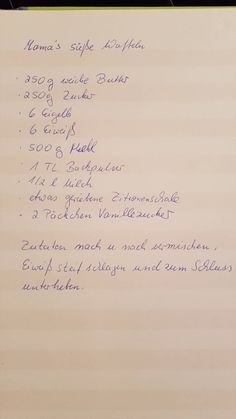 Mama's süße Waffeln
· 250g weiche Butter
· 250g Zucker
· 6 Eigelb
· 6 Eiweiß
· 500g Mehl
· 1 TL Backpulver
· 1/2 l Milch
· etwas geriebene Zitronenschale
· 2 Päckchen Vanillezucker
Zutaten nach u nach vermischen.
Eiweiß steif schlagen und zum Schluss
unterheben.